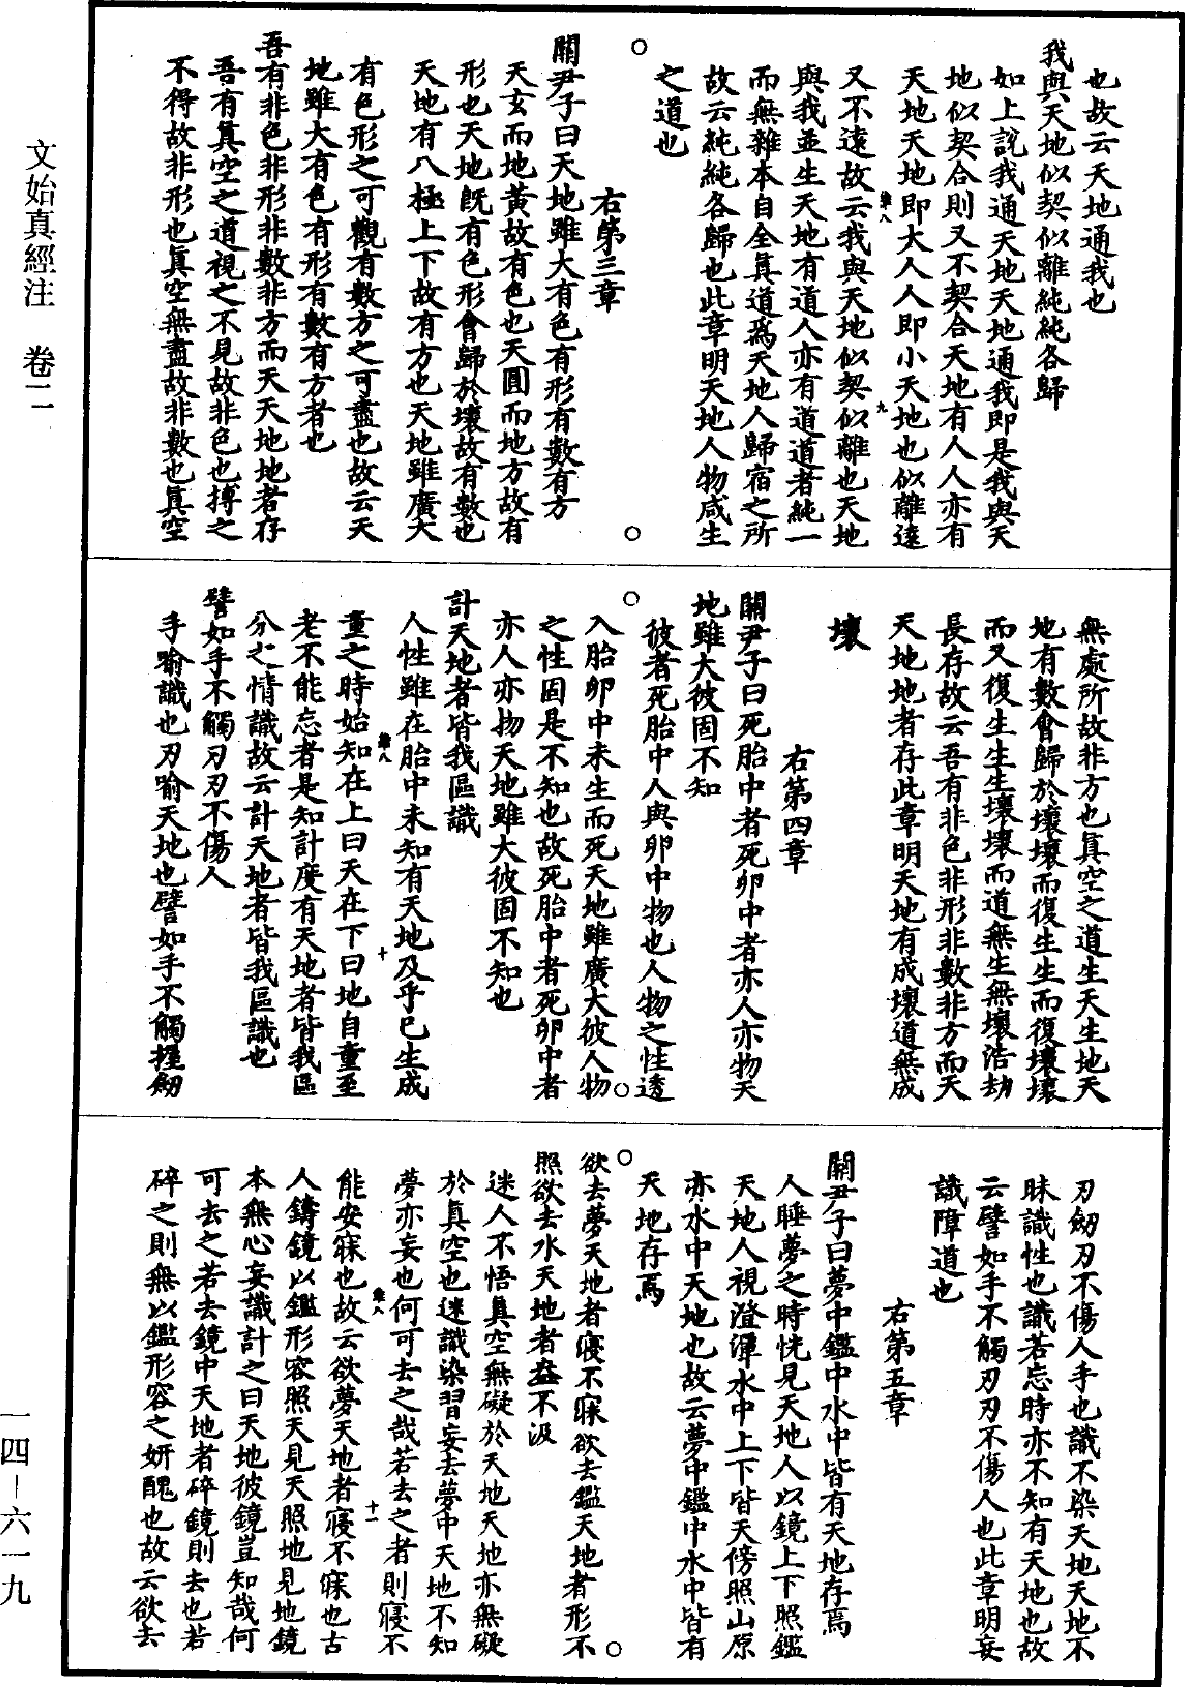 也故云天地通我也
我與天地似契似離純純各歸
如上說我通天地天地通我即是我與天
地似契合則又不契合天地有人人亦有
天地天地即大人人即小天地也似離遠
又不遠故云我與天地似契似離也天地
與我並生天地有道人亦有道道者純一
而無雜本自全真道爲天地人歸宿之所
故云純純各歸也此章明天地人物咸生
之道也
右第三章
關尹子曰天地雖大有色有形有數有方
天玄而地黄故有色也天圓而地方故有
形也天地既有色形會歸於壞故有數也
天地有八極上下故有方也天地雖廣大
有色形之可觀有數方之可盡也故云天
地雖大有色有形有數有方者也
吾有非色非形非數非方而天天地地者存
吾有真空之道視之不見故非色也搏之
不得故非形也真空無盡故非數也真空
無處所故非方也真空之道生天生地天
地有數會歸於壞壞而復生生而復壞壞
而又復生生生壞壞而道無生無壞浩劫
長存故云吾有非色非形非數非方而天
天地地者存此章明天地有成壞道無成
壞
右第四章
關尹子曰死胎中者死卵中者亦人亦物天
地雖大彼固不知
彼者死胎中人與卵中物也人物之性透
入胎卵中未生而死天地雖廣大彼人物
之性固是不知也故死胎中者死卵中者
亦人亦物天地雖大彼固不知也
計天地者皆我區識
人性雖在胎中未知有天地及乎已生成
童之時始知在上曰天在下曰地自童至
老不能忘者是知計度有天地者皆我區
分之情識故云計天地者皆我區識也
譬如手不觸刃刃不傷人
手喻識也刃喻天地也譬如手不觸握劒
刃劒刃不傷人手也識不染天地天地不
昧識性也識若忘時亦不知有天地也故
云譬如手不觸刃刃不傷人也此章明妄
識障道也
右第五章
關尹子曰夢中鑑中水中皆有天地存焉
人睡夢之時恍見天地人以鏡上下照鑑
天地人視澄潭水中上下皆天傍照山原
亦水中天地也故云夢中鑑中水中皆有
天地存焉
欲去夢天地者寢不寐欲去鑑天地者形不
照欲去水天地者盎不汲
迷人不悟真空無礙於天地天地亦無礙
於真空也迷識染習妄去夢中天地不知
夢亦妄也何可去之哉若去之者則寢不
能安寐也故云欲夢天地者寢不寐也古
人鑄鏡以鑑形容照天見天照地見地鏡
本無心妄識計之曰天地彼鏡豈知哉何
可去之若去鏡中天地者碎鏡則去也若
碎之則無以鑑形容之妍醜也故云欲去
文始真經注　卷二
一四—六一九